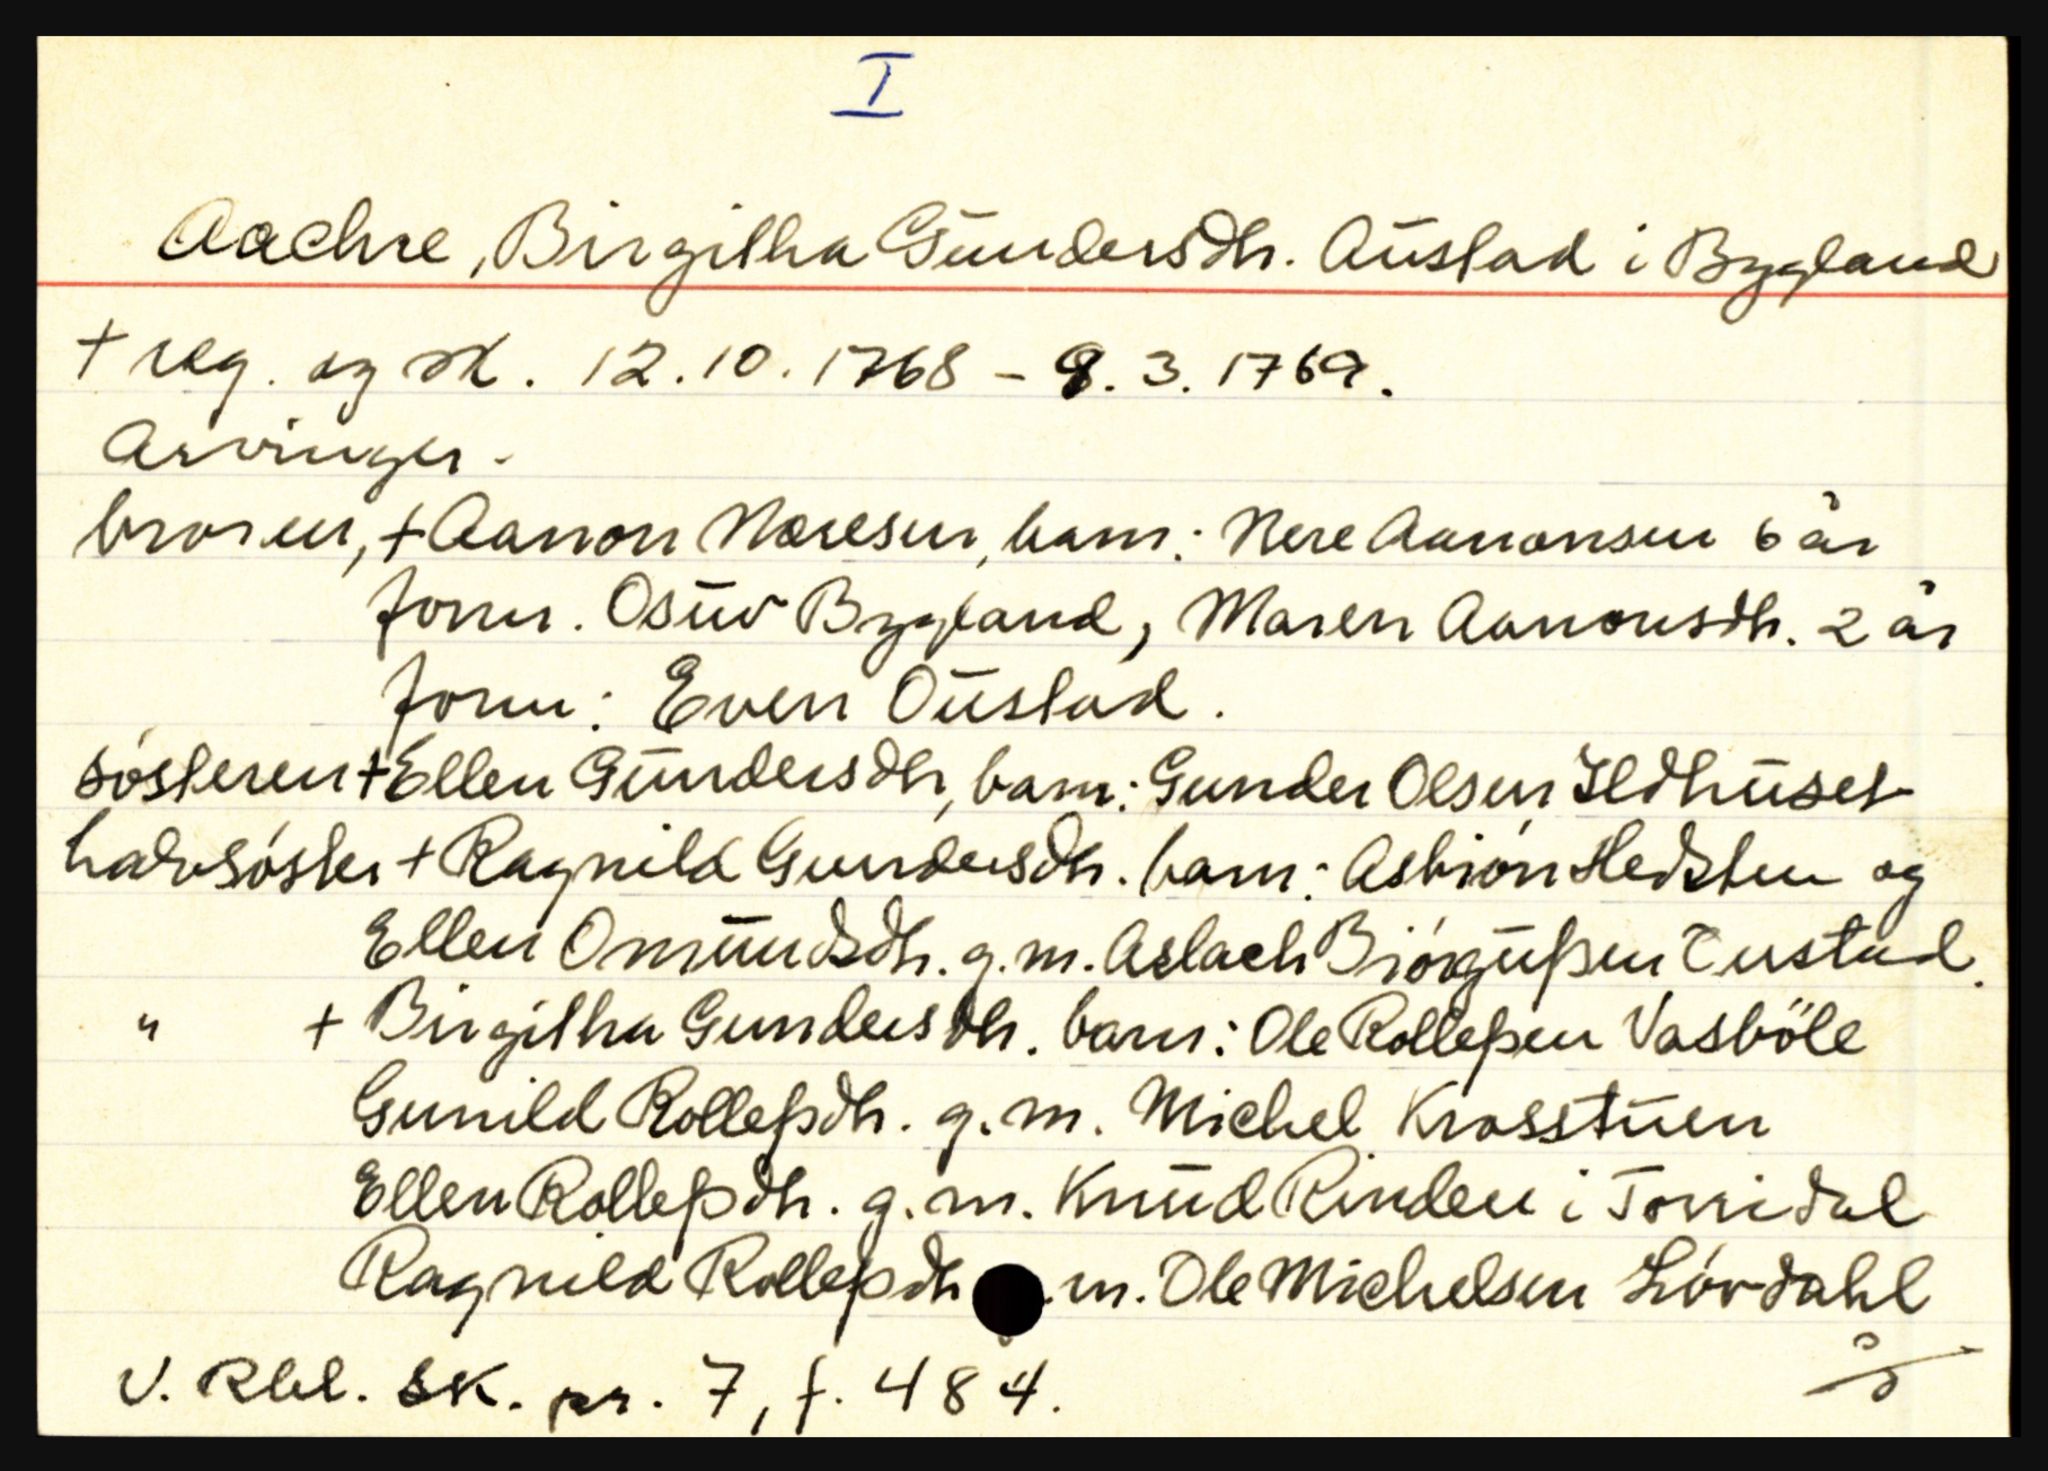 I
Aachre, Birgitha Gundersdtr. Austad i Bygland
+ reg. og sk. 12.10.1768 - 8.3.1769.
Arvinger.
broren, + Aanon Neresen, barn: Nere Aanonsen 6 år
form. Osuv Bygland, Maren Aanonsdtr. 2 år
form: Even Oustad.
søsteren + Ellen Gundersdtr, barn: Gunder Olsen Ildhuset
halvsøster + Ragnild Gundersdtr. barn: Asbiøn Hedsten og
Ellen Omundsdtr. g.m. Aslach Biørgußen Tustad.
" + Birgitha Gundersdtr. barn: Ole Rolleßen Vasböle
Gunild Rolleßdtr. g.m. Michel Krosstuen
Ellen Rolleßdtr. g.m. Knud Rinden i Torridal
Ragnild Rolleßdtr .m. Ole Michelsen Løvdahl
V. Rbl. sk. pr. 7, f. 484.